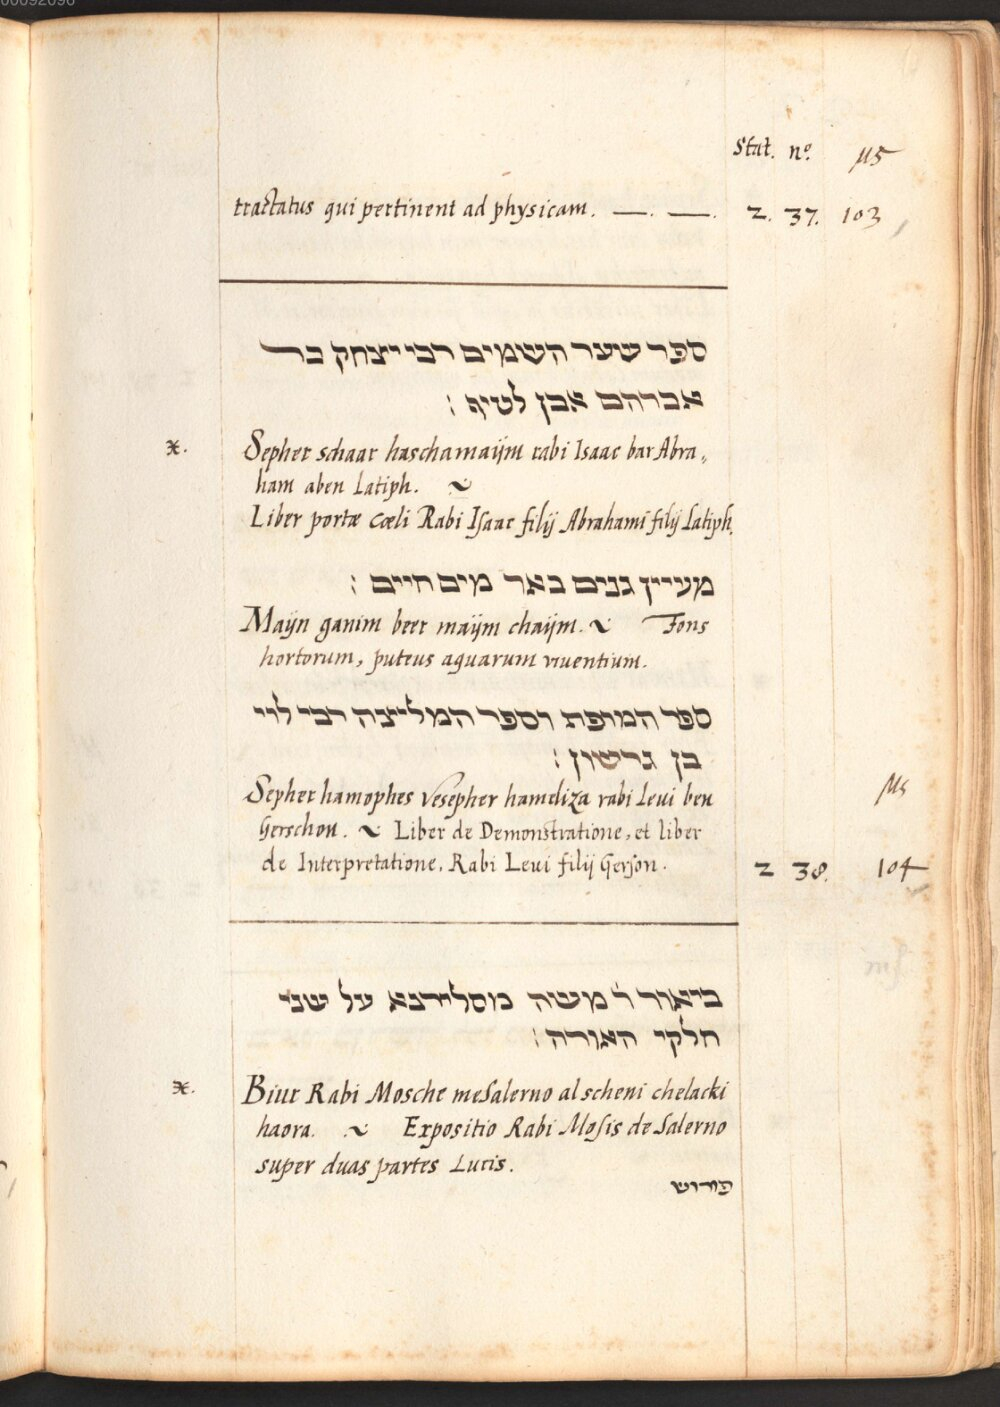 Stat. nº. MS
tractatus qui pertinent ad physicam. —. —. 2. 37. 103
ספר שער השמים רבי יצחק בר
אברהם אבן לטיף :
x. Sepher schaar haschamaijm rabi Isaac bar Abra,,
ham aben Latiph.
Liber portæ cœli Rabi Isaac filij Abrahami filij Latiph.
מעיין גנים באר מים חיים :
Maijn ganim beer maijm chaijm. Fons
hortorum, puteus aquarum viventium.
ספר המופת וספר המליצה רבי לוי
בן גרשון :
Sepher hamophes vesepher hameliza rabi Levi ben
Gerschon. Liber de Demonstratione, et liber
de Interpretatione, Rabi Levi filij Gerson. 2 38. 104
ביאור ר משה מסלירנא על שני
חלקי האורה :
x. Biur Rabi Mosche meSalerno al scheni chelacki
haora. Expositio Rabi Mosis de Salerno
super duas partes Lucis.
פירוש